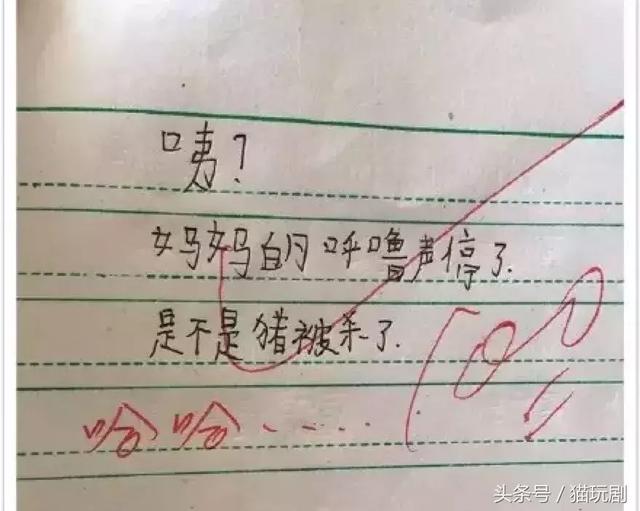 咦?
妈妈的呼噜声停了.
是不是猪被杀了.
100
哈哈.....
头条号/猫玩剧